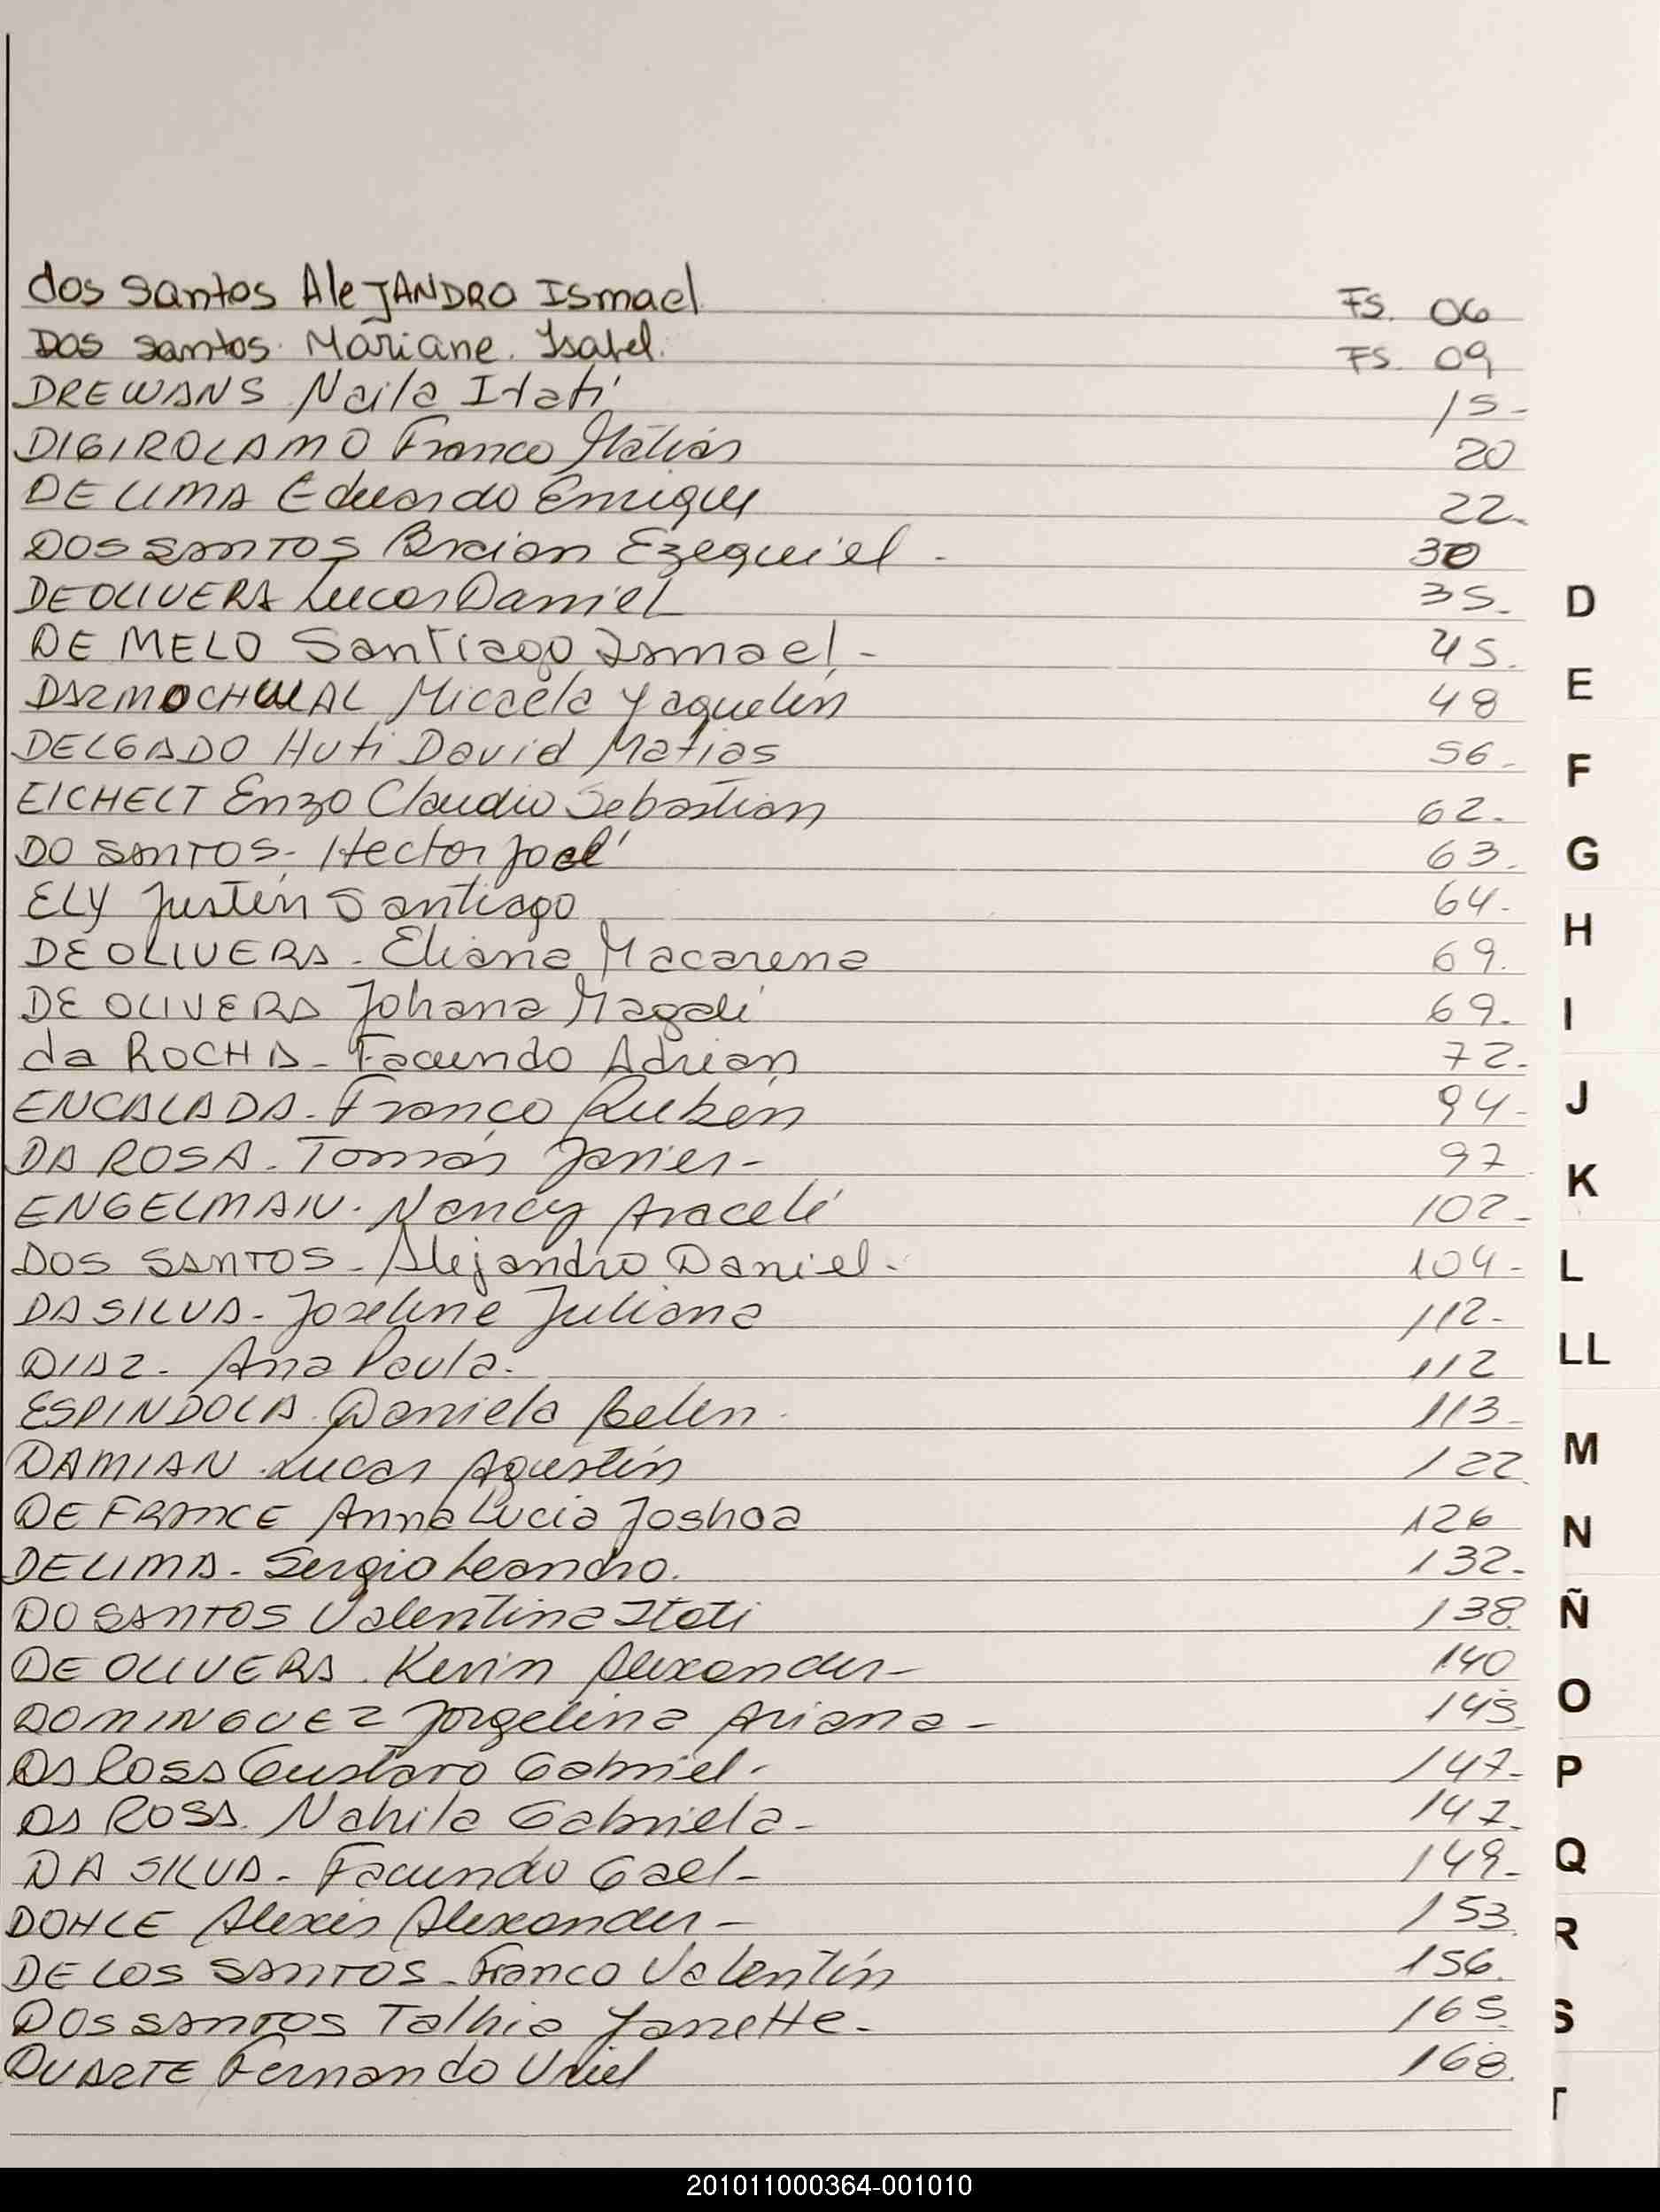 dos santos AleJANDRO Ismael FS. 06
Dos santos. Mariane. Isabel. FS. 09
DREWANS Naila Itatí 15-
DIGIROLAMO Franco Matías 20
DE LIMA Eduardo Enrique 22.
DOS SANTOS Braian Ezequiel - 30
DE OLIVERA Lucas Daniel 35.
DE MELO Santiago Ismael - 45.
Micaela Yaquelin 48
DELGADO Huti David Matias 56.
EICHELT Enzo Claudio Sebastian 62.
DO SANTOS - Hector Joel 63.
ELY Justin Santiago 64.
DE OLIVERA - Eliana Macarena 69.
DE OLIVERA Johana Magali 69.
da ROCHA - Facundo Adrian 72.
ENCALADA - Franco Ruben 94-
DA ROSA - Tomás Javier - 97
ENGELMAN. Nancy Araceli 102-
DOS SANTOS - Alejandro Daniel. 104-
DA SILVA - Joseline Juliana 112-
DIAZ - Ana Paula. 112
ESPINDOLA. Daniela Belen. 113
DAMIAN. Lucas Agustín 122
DE FRANCE Anna Lucia Joshoa 126
DE LIMA - Sergio Leandro. 132.
DO SANTOS Valentina Itati 138.
DE OLIVERA. Kevin Alexander - 140
DOMINGUEZ Jorgelina Ariana - 145
DA ROSA Gustavo Gabriel - 147-
DA ROSA. Nahila Gabriela - 147.
DA SILVA - Facundo Gael - 149-
DOHLE Alexis Alexander - 153.
DE LOS SANTOS - Franco Valentín 156.
DOS SANTOS Talhia Yanette - 165.
DUARTE Fernando Uriel 168.
D
E
F
G
H
I
J
K
L
LL
M
N
Ñ
O
P
Q
R
S
T
201011000364-001010